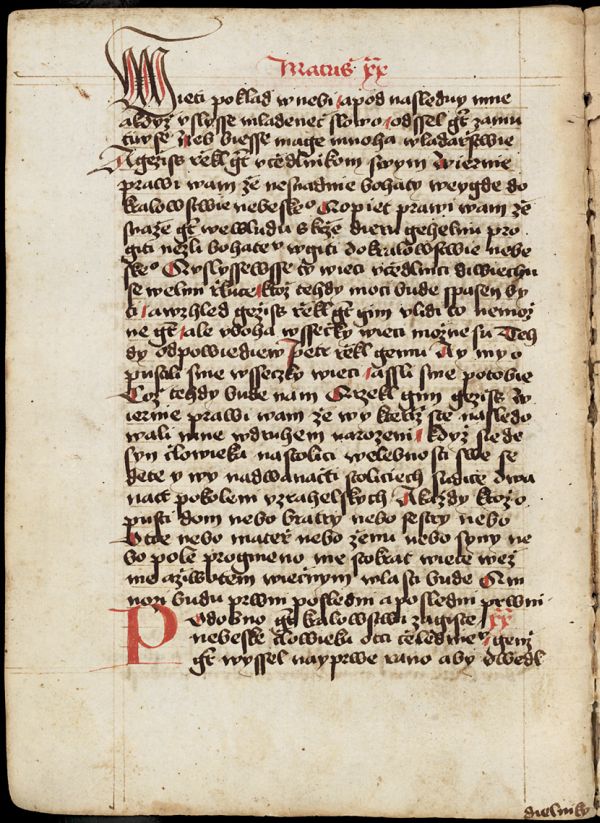 Matus xx
Mieti poklad w nebi / a pod nasleduy mne
a kdyz vslysse mladenec slowo / odssel gt zamu
tiw se Neb biesse mage mnoha wladarstwie
A gezis rzekl gt vczedlnikom swym Wiernie
prawi wam ze nesnadnie bohaty weygde do
kralowstwie nebeske° A opiet prawi wam ze
snaze gt welbludu skze dieru gehelnu pro
giti nezli bohatev wgiti do kralowstwie nebe
ske° A vslyssewsse ty wieci vczedlnici diwiechu
se welmi rzkuce ktoz tehdy moci bude spasen by
ti / a wzhled gezis rzekl gt gim v lidi to nemoz
ne gt / ale v boha wssecky wieci mozne su Teh
dy odpowiediew Petr rzekl gemu Ay my o
pustili sme wsseczky wieci / a ssli sme po tobie
Coz tehdy bude nam A rzekl gim gezis W
iernie prawi wam ze wy kterziz ste nasledo
wali mne w druhem narozeni / kdyz siede
syn czlowieka na stolici welebnosti swe se
dete y wy na dwanaczti stoliciech sudice dwa
nact pokolem yzrahelskych A kazdy ktoz o
pusti dom nebo bratry nebo sestry nebo
Otce nebo materz nebo zenu nebo syny ne
bo pole pro gmeno me stokrat wiece wez
me a ziwotem wiecznym wlasti bude A m
nozi budu prwni posledni a posledni prwni
Podobno gt kralowstwi zagiste xx
nebeske czlowieku otci czeledniev / genz
gt wyssel nayprwe rano aby dwedl
dielniky